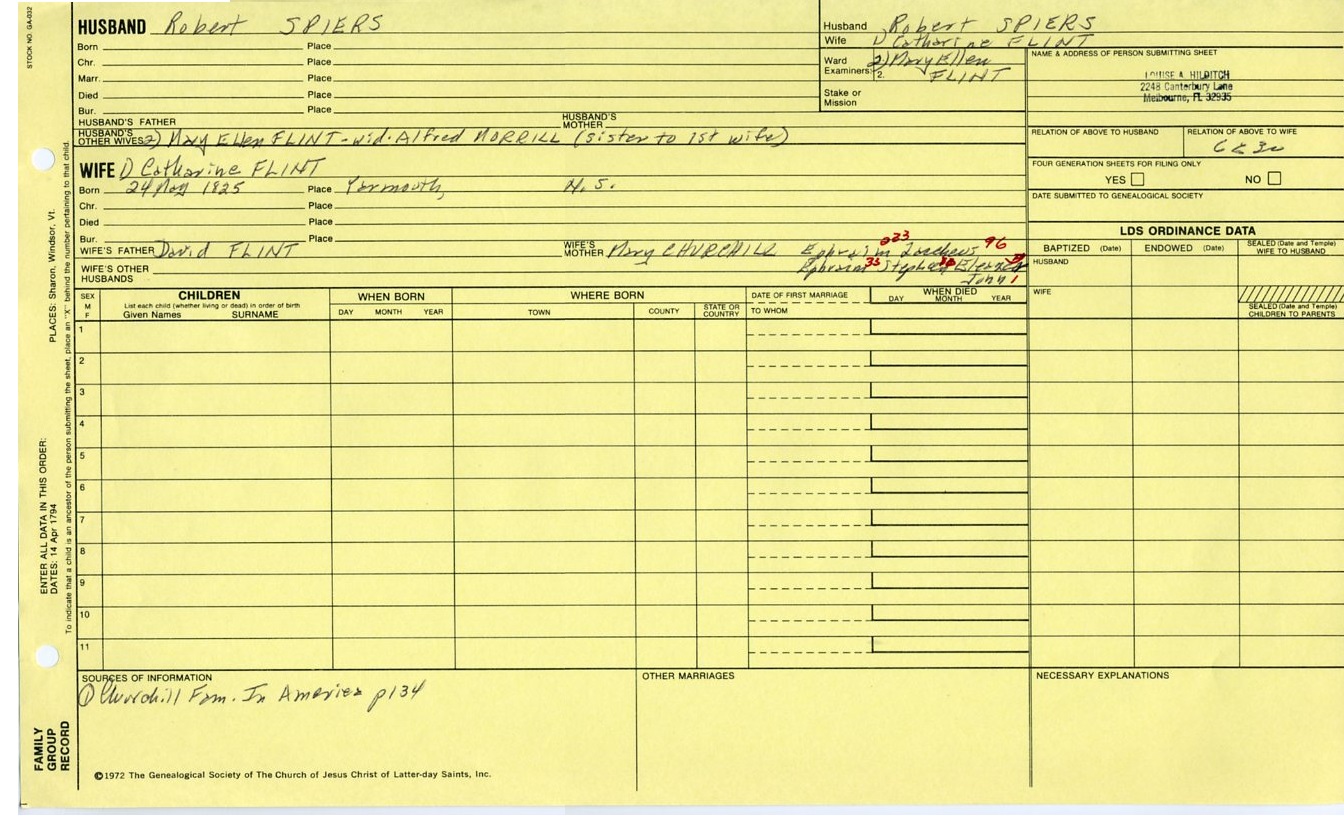 STOCK NO. GA-032
HUSBAND Robert SPIERS
Born Place
Chr. Place
Marr. Place
Died Place
Bur. Place
HUSBAND'S FATHER HUSBAND'S MOTHER
HUSBAND'S OTHER WIVES 2) Mary Ellen FLINT - wid. Alfred MORRILL (sister to 1st wife)
WIFE 1) Catharine FLINT
Born 24 May 1825 Place Yarmouth, N.S.
Chr. Place
Died Place
Bur. Place
WIFE'S FATHER David FLINT WIFE'S MOTHER Mary CHURCHILL Ephraim 233 96
WIFE'S OTHER HUSBANDS Ephraim 33 Stephen
John 1
Husband Robert SPIERS
Wife 1) Catharine FLINT
Ward 2) Mary Ellen
Examiners: 2. FLINT
Stake or Mission
NAME & ADDRESS OF PERSON SUBMITTING SHEET
LOUISE A. HILDITCH
2248 Canterbury Lane
Melbourne, FL 32935
RELATION OF ABOVE TO HUSBAND RELATION OF ABOVE TO WIFE
FOUR GENERATION SHEETS FOR FILING ONLY
YES NO
DATE SUBMITTED TO GENEALOGICAL SOCIETY
LDS ORDINANCE DATA
BAPTIZED (Date) ENDOWED (Date) SEALED (Date and Temple) WIFE TO HUSBAND
HUSBAND
WIFE
SEALED (Date and Temple) CHILDREN TO PARENTS
SEX M F
CHILDREN
List each child (whether living or dead) in order of birth
Given Names SURNAME
WHEN BORN
DAY MONTH YEAR
WHERE BORN
TOWN COUNTY STATE OR COUNTRY
DATE OF FIRST MARRIAGE
TO WHOM
WHEN DIED
DAY MONTH YEAR
1
2
3
4
5
6
7
8
9
10
11
SOURCES OF INFORMATION
① Churchill Fam. In America p134
OTHER MARRIAGES
NECESSARY EXPLANATIONS
©1972 The Genealogical Society of The Church of Jesus Christ of Latter-day Saints, Inc.
PLACES: Sharon, Windsor, Vt.
ENTER ALL DATA IN THIS ORDER:
DATES: 14 Apr 1794
To indicate that a child is an ancestor of the person submitting the sheet, place an "X" behind the number pertaining to that child.
FAMILY
GROUP
RECORD